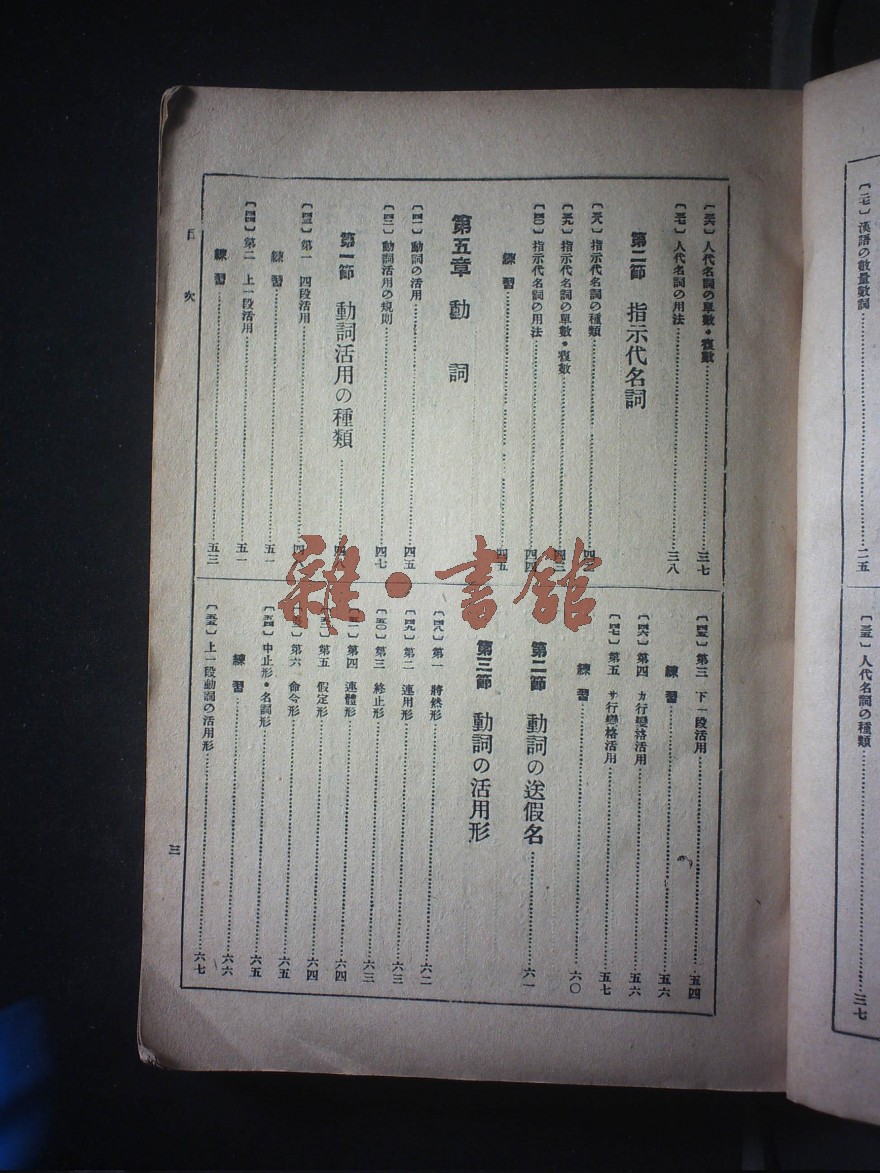 〔二七〕 漢語の數量數詞……二五
〔三五〕 人代名詞の種類……三七
〔三六〕 人代名詞の單數・複數……三七
〔三七〕 人代名詞の用法……三八
第二節 指示代名詞
〔三八〕 指示代名詞の種類……四
〔三九〕 指示代名詞の單數・複數……四三
〔四〇〕 指示代名詞の用法……四四
練習……四五
第五章 動詞
〔四一〕 動詞の活用……四五
〔四二〕 動詞活用の規則……四七
第一節 動詞活用の種類……四八
〔四三〕 第一 四段活用……四
練習……五一
〔四四〕 第二 上一段活用……五一
練習……五三
〔四五〕 第三 下一段活用……五四
練習……五六
〔四六〕 第四 カ行變格活用……五六
〔四七〕 第五 サ行變格活用……五七
練習……六〇
第二節 動詞の送假名……六一
第三節 動詞の活用形
〔四八〕 第一 將然形……六二
〔四九〕 第二 連用形……六三
〔五〇〕 第三 終止形……六三
第四 連體形……六四
第五 假定形……六四
第六 命令形……六五
〔五四〕 中止形・名詞形……六五
練習……六六
〔五五〕 上一段動詞の活用形……六七
目次
三
雜・書館